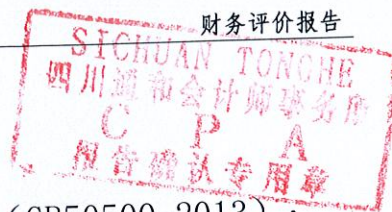 财务评价报告
SICHUAN TONGHE
四川通和会计师事务所
C P A
报告确认专用章
(GB50500-2013)